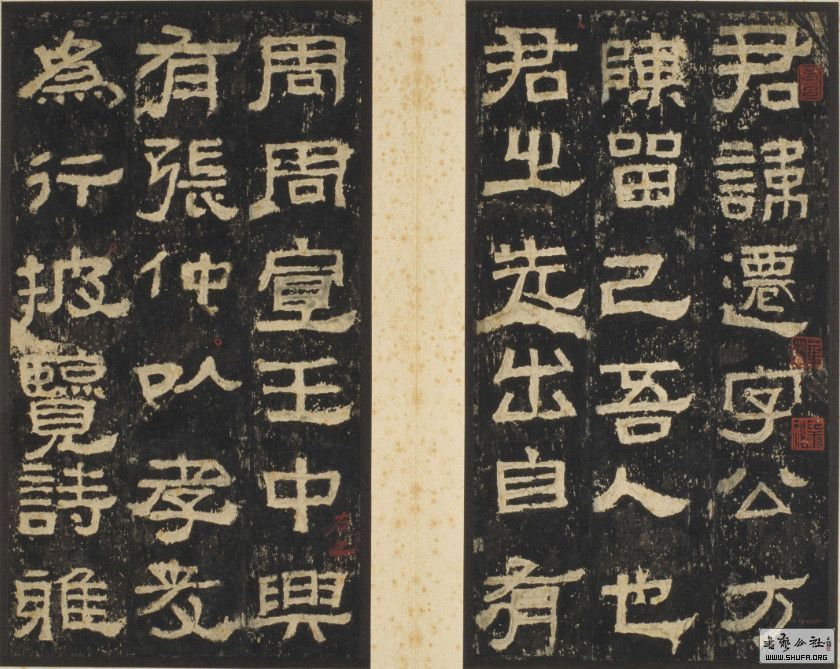 君諱遷字公方
陳留己吾人也
君之先出自有
周周宣王中興
有張仲以孝友
為行披覽詩雅
書藝公社
WWW.SHUFA.ORG